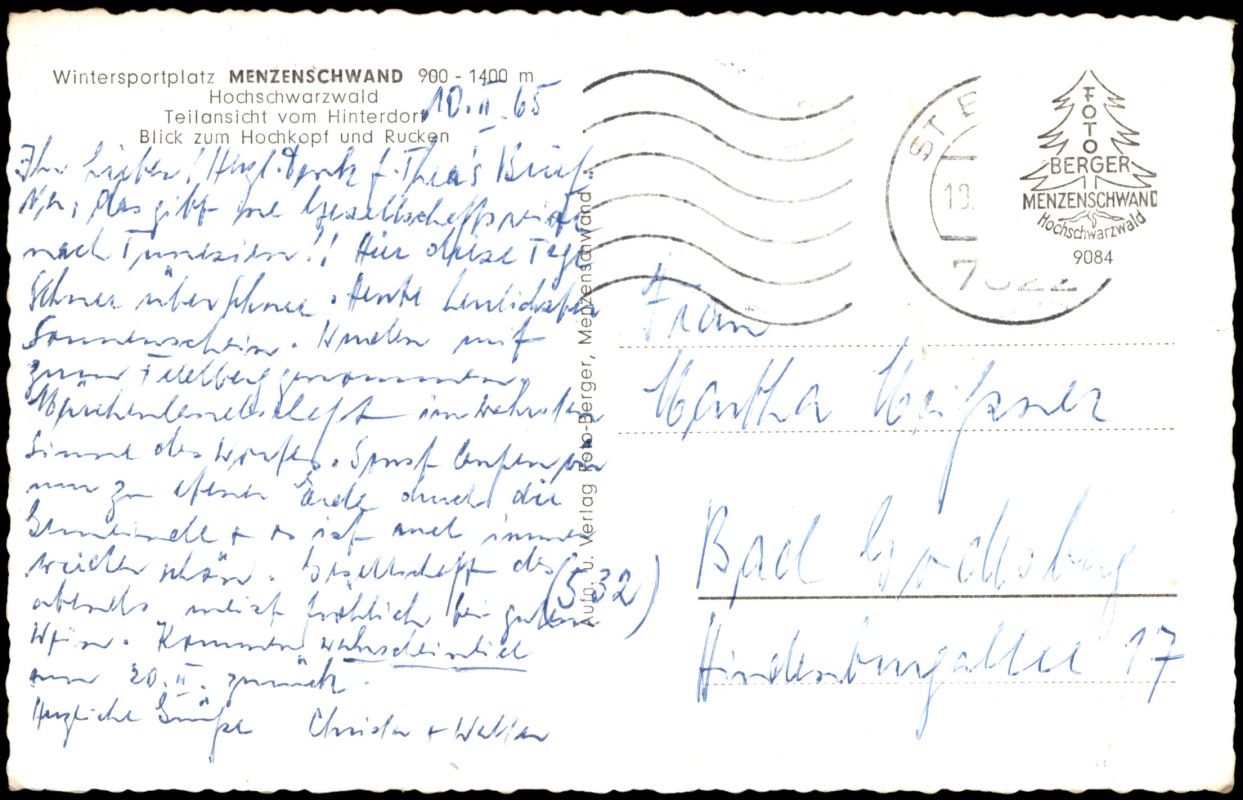 Wintersportplatz MENZENSCHWAND 900 - 1400 m
Hochschwarzwald
Teilansicht vom Hinterdorf
Blick zum Hochkopf und Rucken
10. II. 65
Ihr Lieben! Herzl. Dank f. Thea's Brief.
Na, das gibt ne Gesellschaftsreise
nach Tunesien!! Hier diese Tage
Schnee über Schnee. Heute herrlichster
Sonnenschein. Wurden mit
zum Feldberg genommen.
Märchenlandschaft im wahrsten
Sinne des Wortes. Sonst laufen wir
nur zu ebener Erde durch die
Gemeinde + es ist auch immer
wieder schön. Gesellschaft des
abends meist fröhlich bei gutem
Wein. Kommen wahrscheinlich
am 20. II. zurück.
Herzliche Grüße Christa + Walter
Aufn. u. Verlag Foto-Berger, Menzenschwand
ST
7822
FOTO
BERGER
MENZENSCHWAND
Hochschwarzwald
9084
Frau
Martha Meißner
(532)
Bad Godesberg
Hindenburgallee 17